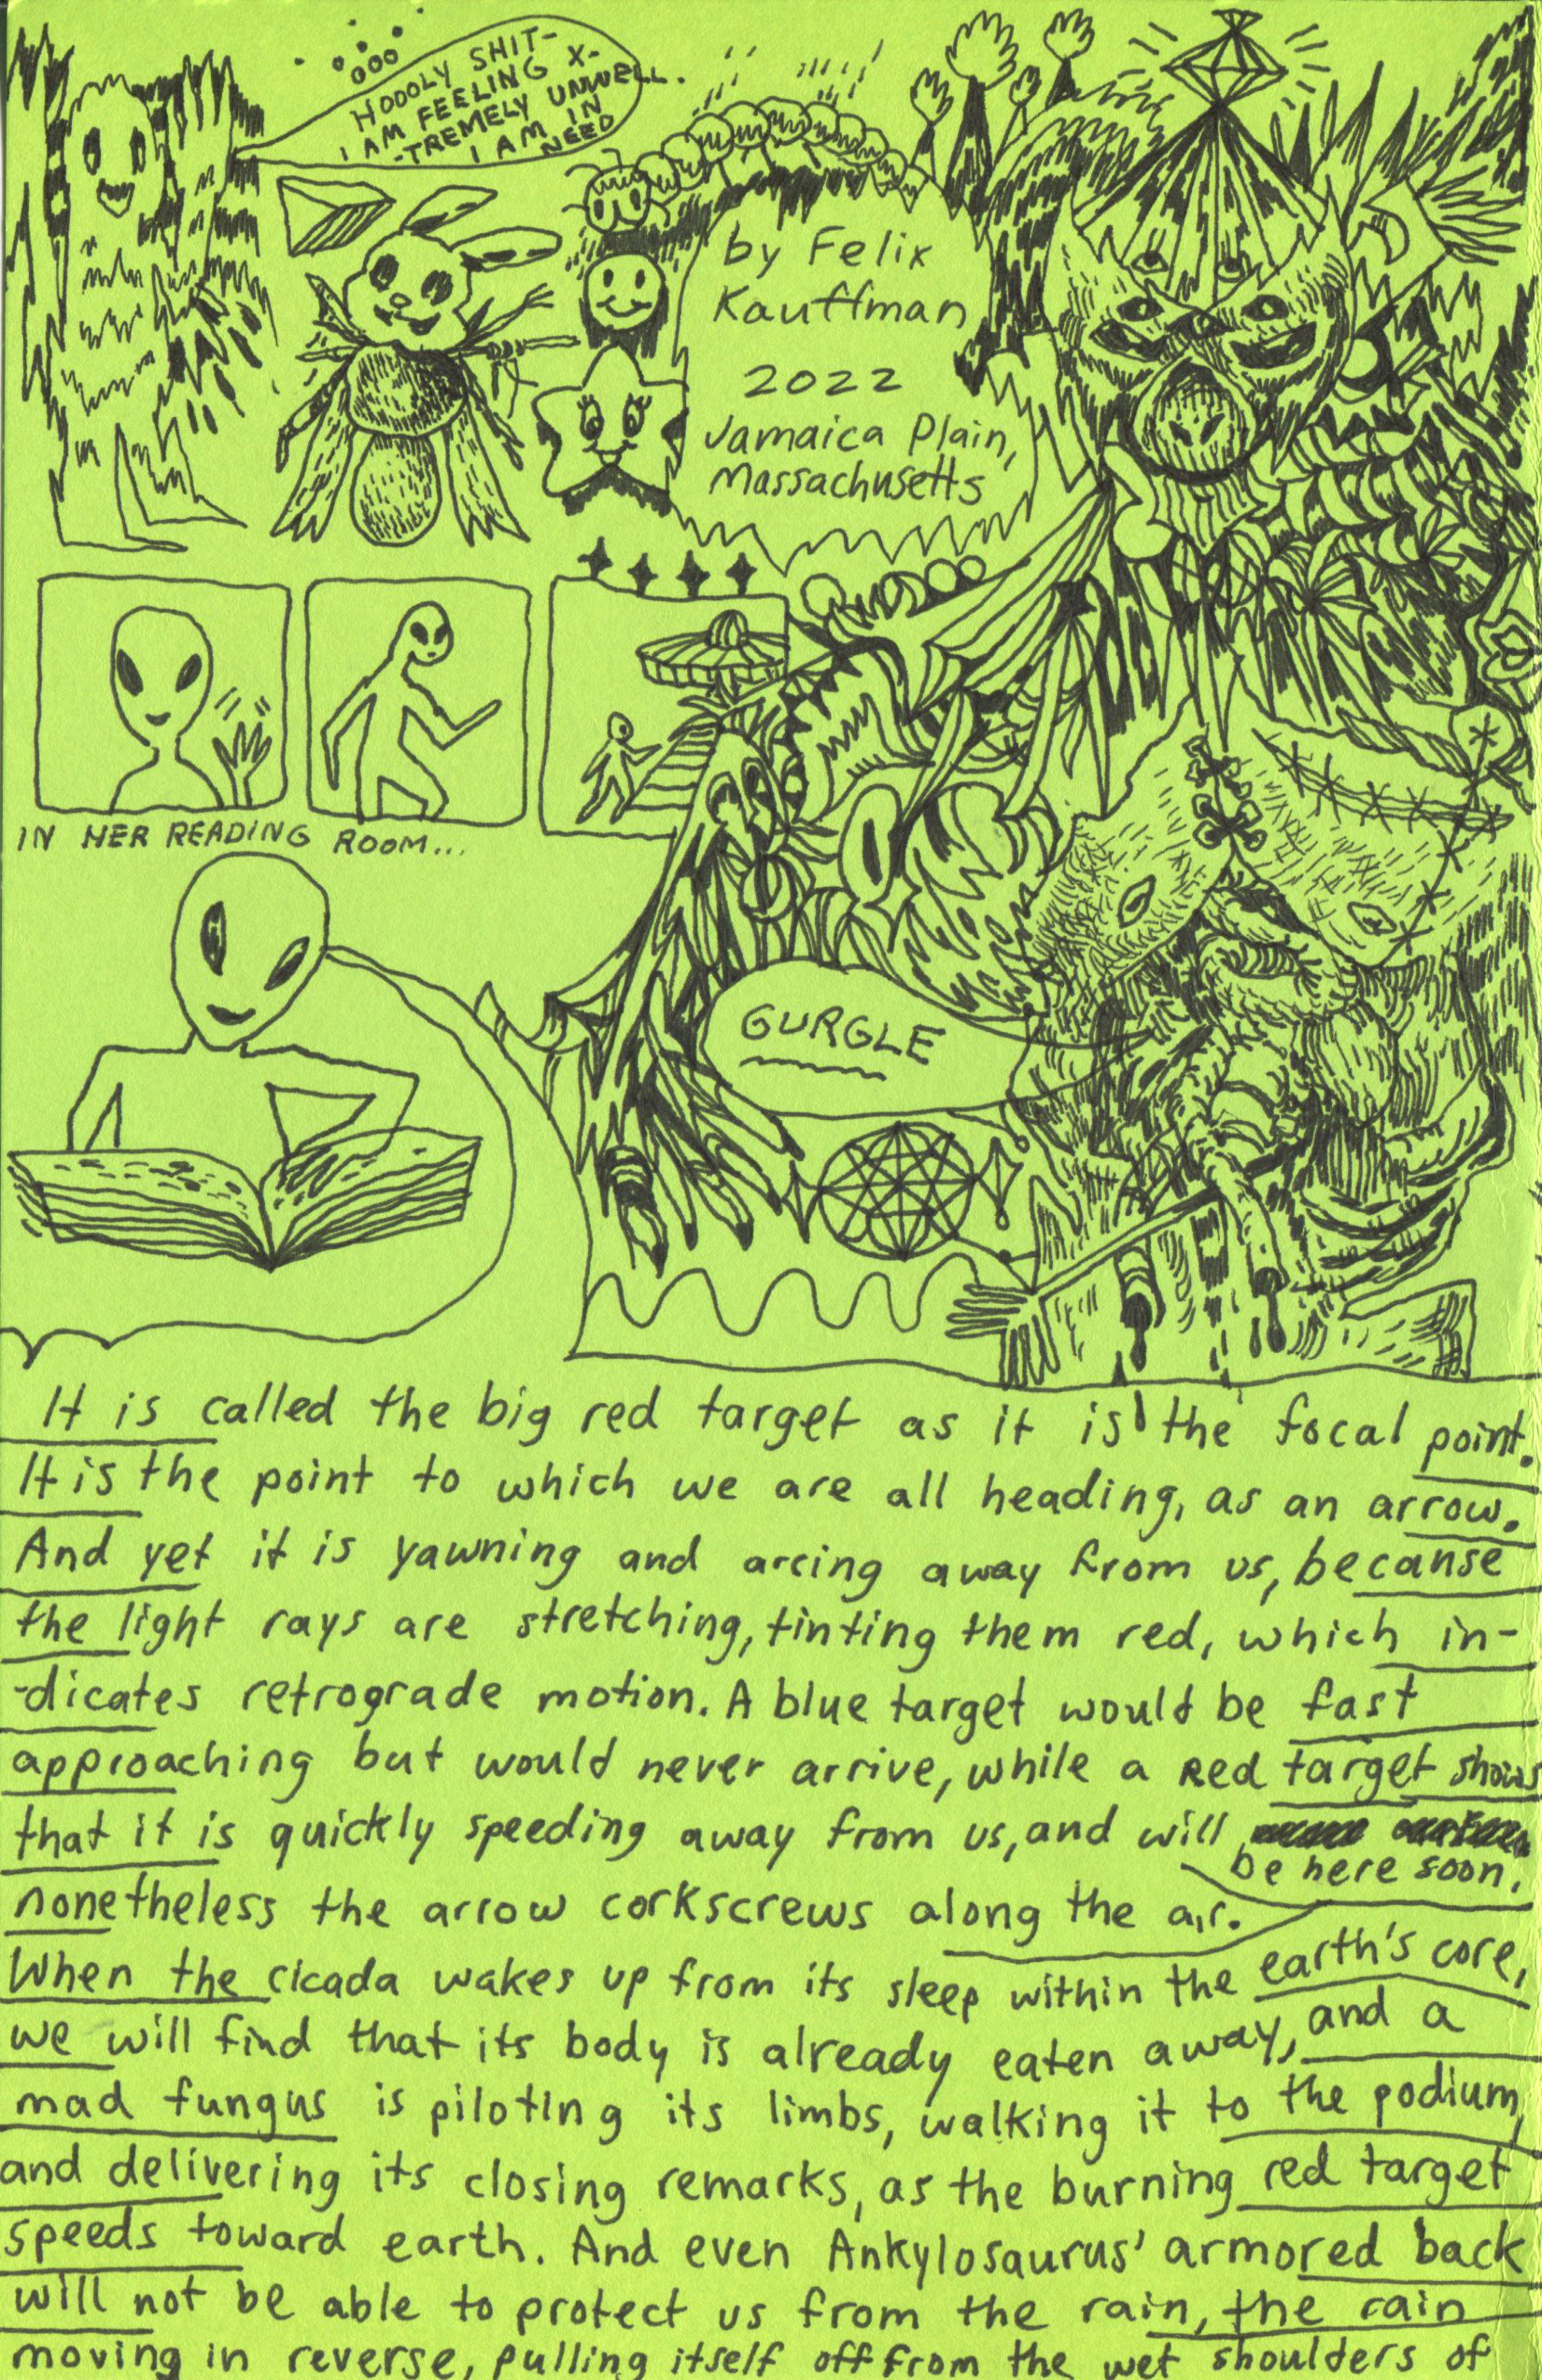 HOOOLY SHIT-
I AM FEELING X-
-TREMELY UNWELL.
I AM IN
NEED
by Felix
Kauffman
2022
Jamaica Plain,
Massachusetts
IN HER READING ROOM...
GURGLE
It is called the big red target as it is the focal point.
It is the point to which we are all heading, as an arrow.
And yet it is yawning and arcing away from us, because
the light rays are stretching, tinting them red, which in-
-dicates retrograde motion. A blue target would be fast
approaching but would never arrive, while a Red target shows
that it is quickly speeding away from us, and will
be here soon.
nonetheless the arrow corkscrews along the air.
When the cicada wakes up from its sleep within the earth's core,
we will find that its body is already eaten away, and a
mad fungus is piloting its limbs, walking it to the podium,
and delivering its closing remarks, as the burning red target
speeds toward earth. And even Ankylosaurus' armored back
will not be able to protect us from the rain, the rain
moving in reverse, pulling itself off from the wet shoulders of